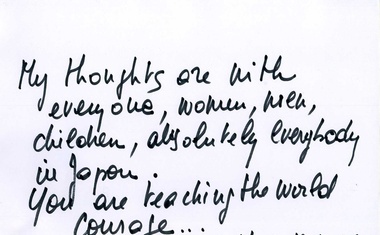 My thoughts are with
everyone, women, men,
children, absolutely everybody
in Japan.
You are teaching the world
courage...